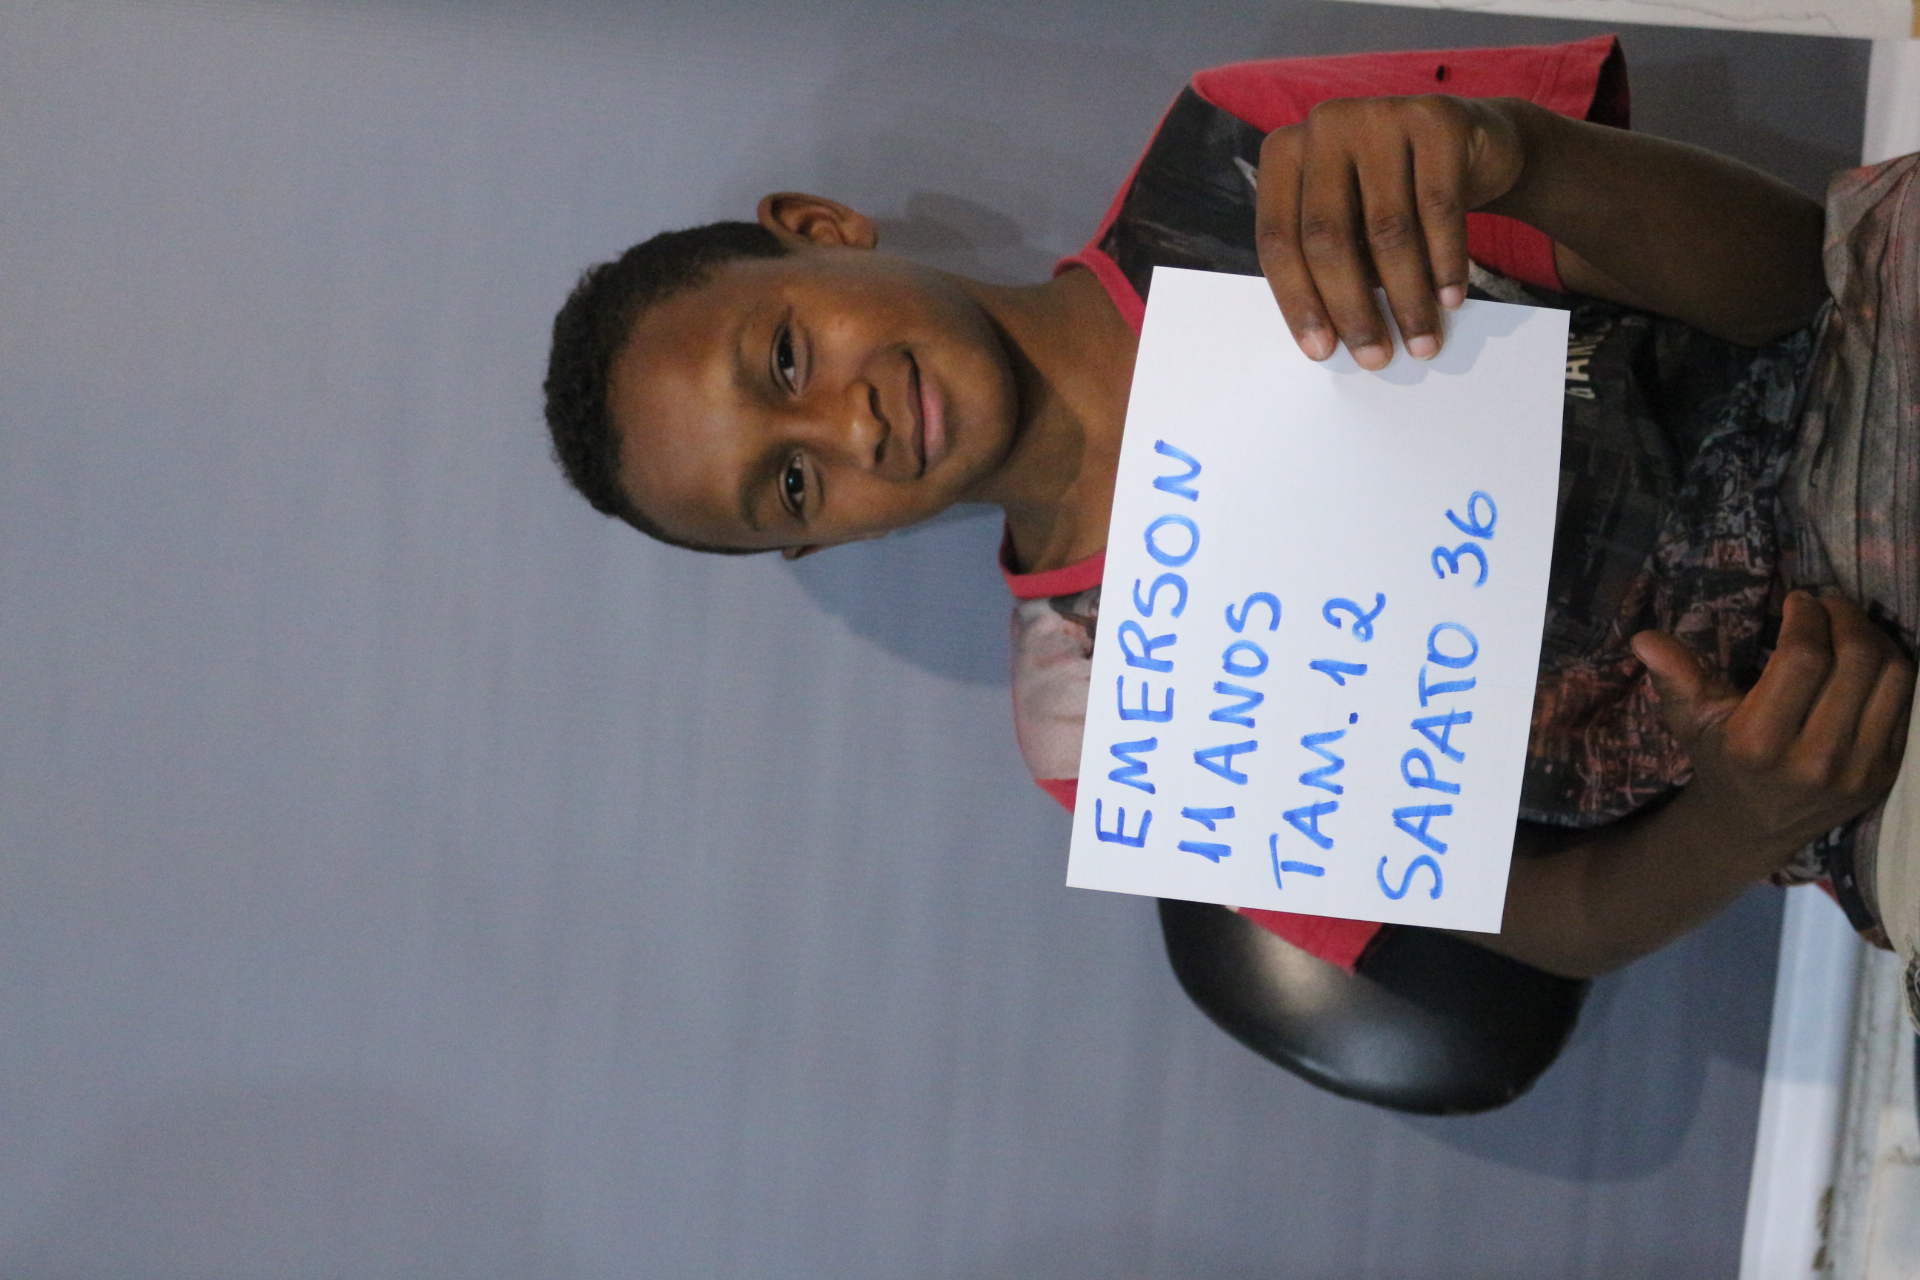 EMERSON
11 ANOS
TAM. 12
SAPATO 36